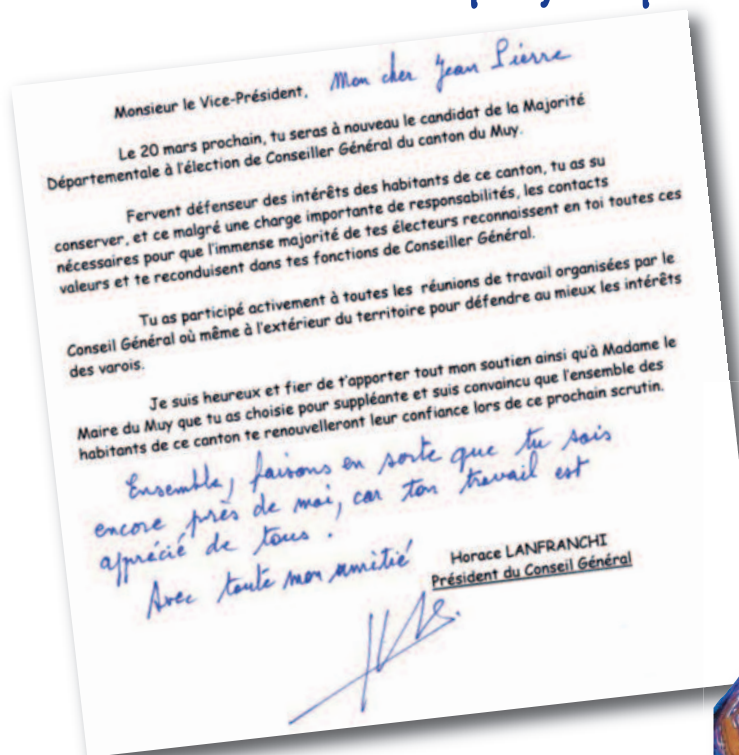 Monsieur le Vice-Président, Mon cher Jean Pierre
Le 20 mars prochain, tu seras à nouveau le candidat de la Majorité
Départementale à l'élection de Conseiller Général du canton du Muy.
Fervent défenseur des intérêts des habitants de ce canton, tu as su
conserver, et ce malgré une charge importante de responsabilités, les contacts
nécessaires pour que l'immense majorité de tes électeurs reconnaissent en toi toutes ces
valeurs et te reconduisent dans tes fonctions de Conseiller Général.
Tu as participé activement à toutes les réunions de travail organisées par le
Conseil Général où même à l'extérieur du territoire pour défendre au mieux les intérêts
des varois.
Je suis heureux et fier de t'apporter tout mon soutien ainsi qu'à Madame le
Maire du Muy que tu as choisie pour suppléante et suis convaincu que l'ensemble des
habitants de ce canton te renouvelleront leur confiance lors de ce prochain scrutin.
Ensemble, faisons en sorte que tu sois
encore près de moi, car ton travail est
apprécié de tous.
Avec toute mon amitié
Horace LANFRANCHI
Président du Conseil Général